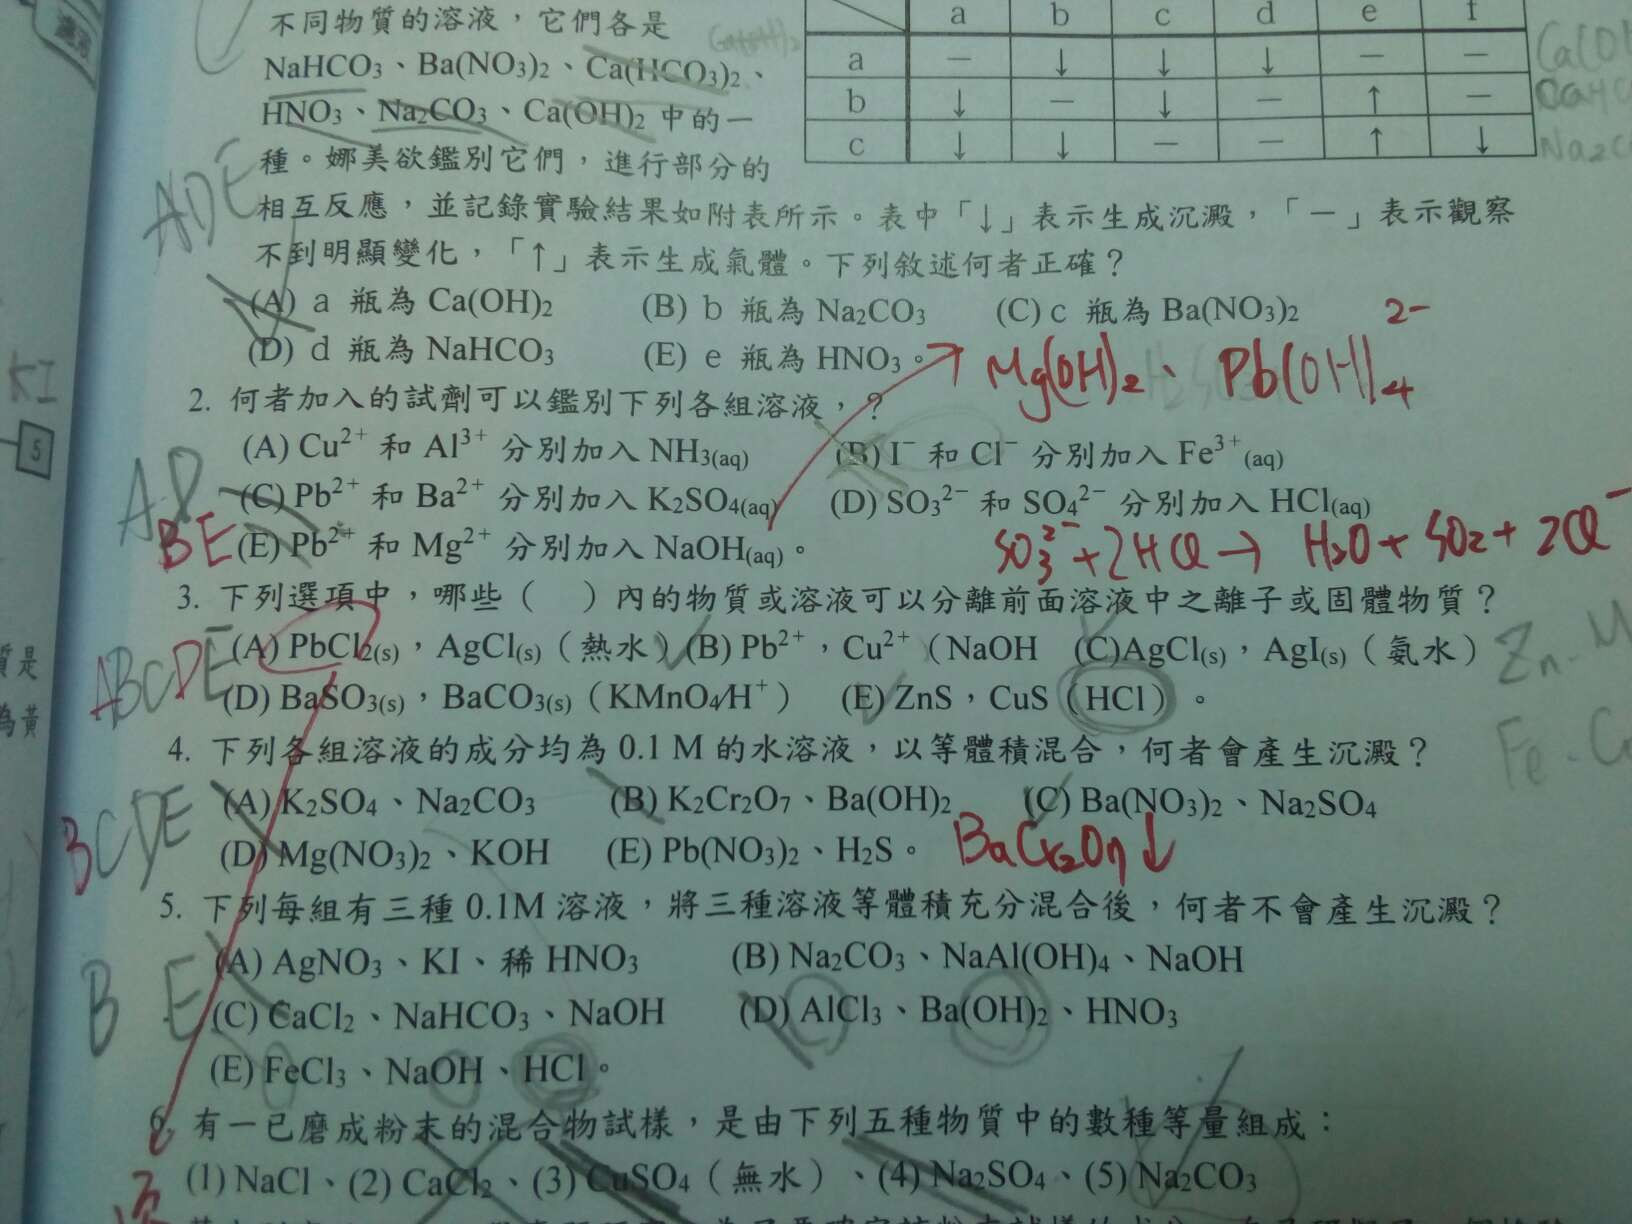 不同物質的溶液，它們各是
NaHCO3、Ba(NO3)2、Ca(HCO3)2、
HNO3、Na2CO3、Ca(OH)2 中的一
種。娜美欲鑑別它們，進行部分的
a b c d e f
a － ↓ ↓ ↓ － －
b ↓ － ↓ － ↑ －
c ↓ ↓ － － ↑ ↓
相互反應，並記錄實驗結果如附表所示。表中「↓」表示生成沉澱，「－」表示觀察
不到明顯變化，「↑」表示生成氣體。下列敘述何者正確？
ADE
(A) a 瓶為 Ca(OH)2 (B) b 瓶為 Na2CO3 (C) c 瓶為 Ba(NO3)2
(D) d 瓶為 NaHCO3 (E) e 瓶為 HNO3。
Mg(OH)2、Pb(OH)4 2-
KI
5
2. 何者加入的試劑可以鑑別下列各組溶液，？
(A) Cu2+ 和 Al3+ 分別加入 NH3(aq) (B) I− 和 Cl− 分別加入 Fe3+(aq)
(C) Pb2+ 和 Ba2+ 分別加入 K2SO4(aq) (D) SO32− 和 SO42− 分別加入 HCl(aq)
BE
(E) Pb2+ 和 Mg2+ 分別加入 NaOH(aq)。
SO32- + 2HCl → H2O + SO2 + 2Cl-
3. 下列選項中，哪些（ ）內的物質或溶液可以分離前面溶液中之離子或固體物質？
(A) PbCl2(s)，AgCl(s)（熱水）(B) Pb2+，Cu2+（NaOH (C)AgCl(s)，AgI(s)（氨水）
ABCDE
(D) BaSO3(s)，BaCO3(s)（KMnO4/H+） (E) ZnS，CuS（HCl）。
4. 下列各組溶液的成分均為 0.1 M 的水溶液，以等體積混合，何者會產生沉澱？
(A) K2SO4、Na2CO3 (B) K2Cr2O7、Ba(OH)2 (C) Ba(NO3)2、Na2SO4
BCDE
(D) Mg(NO3)2、KOH (E) Pb(NO3)2、H2S。
BaCr2O7↓
5. 下列每組有三種 0.1M 溶液，將三種溶液等體積充分混合後，何者不會產生沉澱？
(A) AgNO3、KI、稀 HNO3 (B) Na2CO3、NaAl(OH)4、NaOH
B E
(C) CaCl2、NaHCO3、NaOH (D) AlCl3、Ba(OH)2、HNO3
(E) FeCl3、NaOH、HCl。
6. 有一已磨成粉末的混合物試樣，是由下列五種物質中的數種等量組成：
(1) NaCl、(2) CaCl2、(3) CuSO4（無水）、(4) Na2SO4、(5) Na2CO3